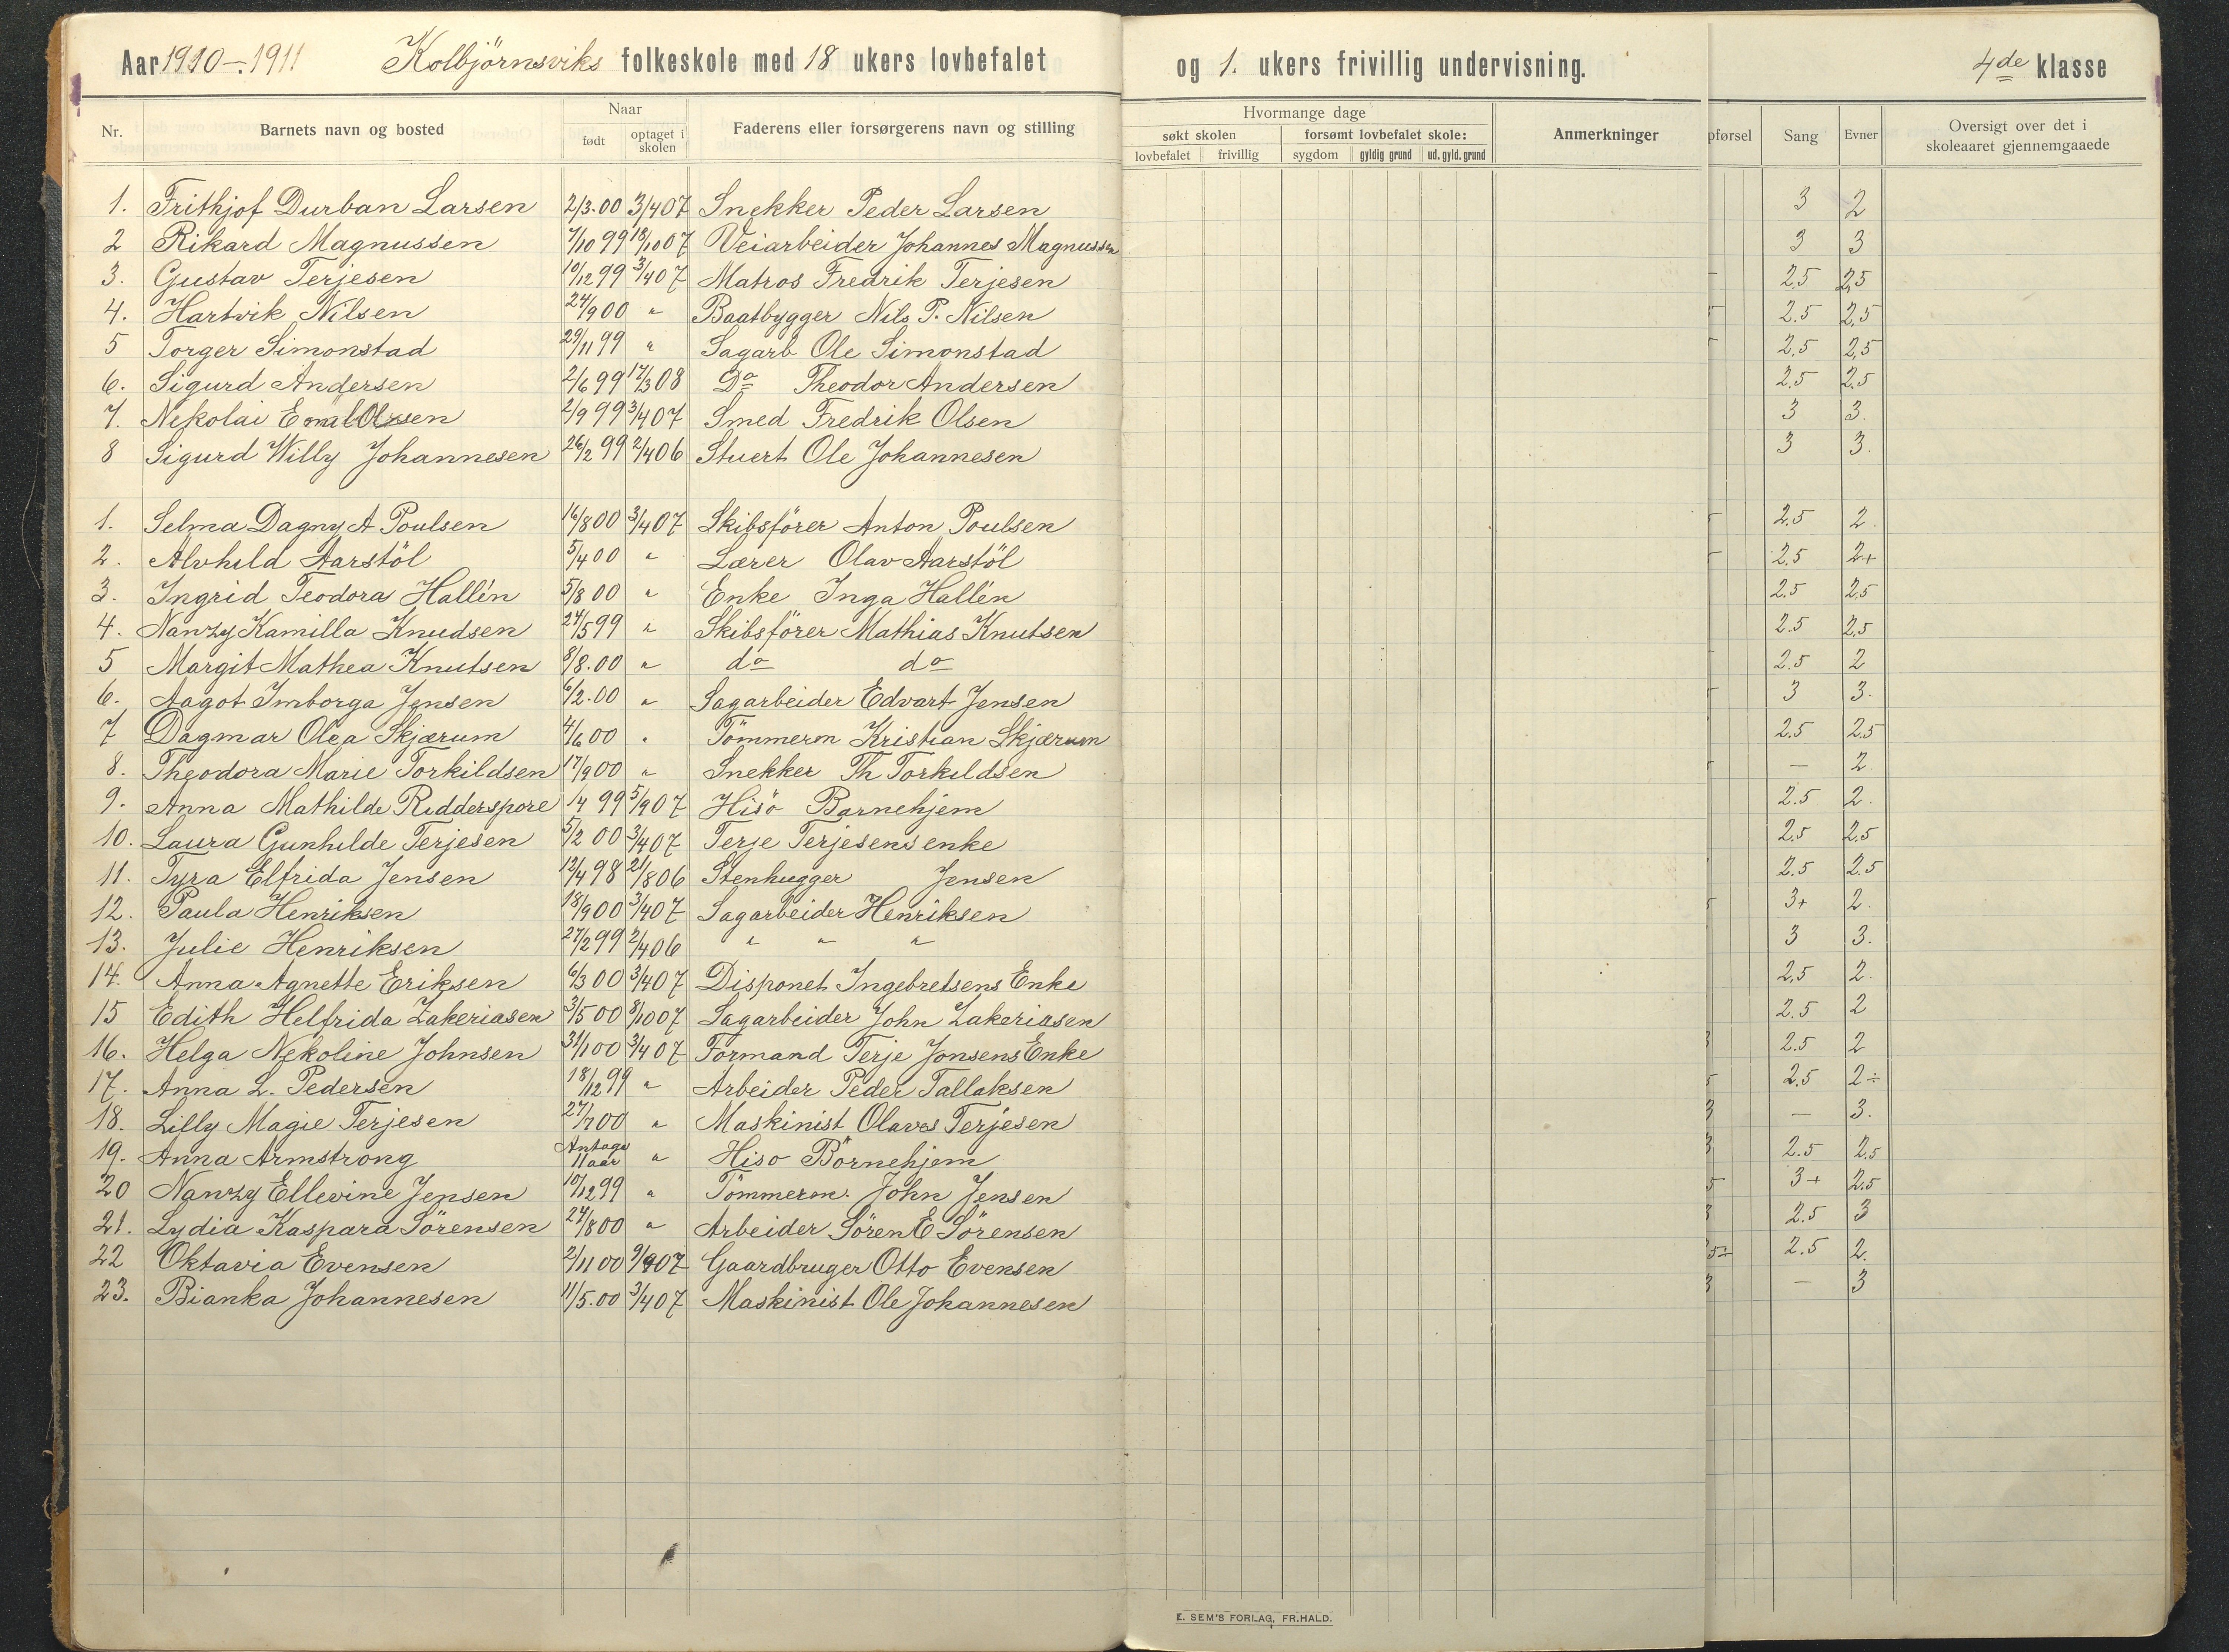 Aar 1910-1911 Kolbjörnsviks folkeskole med 18 ukers lovbefalet og 1. ukers frivillig undervisning. 4de klasse
Nr. Barnets navn og bosted Naar Faderens eller forsørgerens navn og stilling Hvormange dage Anmerkninger pførsel Sang Evner Oversigt over det i skoleaaret gjennemgaaede
født optaget i skolen søkt skolen forsømt lovbefalet skole:
lovbefalet frivillig sygdom gyldig grund ud. gyld. grund
1. Frithjof Durban Larsen 2/3.00 3/4 07 Snekker Peder Larsen 3 2
2 Rikard Magnussen 7/10 99 18/10 07 Veiarbeider Johannes Magnussen 3 3
3. Gustav Terjesen 10/12 99 3/4 07 Matros Fredrik Terjesen 2,5 2,5
4. Hartvik Nilsen 24/9 00 " Baatbygger Nils P. Nilsen 2.5 2,5
5 Torger Simonstad 29/11 99 " Sagarb Ole Simonstad 2,5 2,5
6. Sigurd Andersen 2/6 99 17/3 08 Do Theodor Andersen 2.5 2.5
7. Nekolai Emil Olsen 2/9 99 3/4 07 Smed Fredrik Olsen 3 3.
8 Sigurd Willy Johannesen 26/2 99 2/4 06 Stuert Ole Johannesen 3 3.
1. Selma Dagny A Poulsen 16/8 00 3/4 07 Skibsförer Anton Poulsen 2,5 2.
2. Alvhild Aarstöl 5/4 00 " Lærer Olav Aarstöl 2.5 2+
3. Ingrid Teodora Hallén 5/8 00 " Enke Inga Hallén 2.5 2,5
4. Nanzy Kamilla Knudsen 24/5 99 " Skibsförer Mathias Knutsen 2.5 2,5
5 Margit Mathea Knutsen 8/8.00 " do do 2.5 2
6. Aagot Imborga Jensen 6/2.00 " Sagarbeider Edvart Jensen 3 3.
7 Dagmar Olea Skjærum 4/6 00 " Tömmerm Kristian Skjærum 2.5 2.5
8. Theodora Marie Torkildsen 17/9 00 " Snekker Th Torkildsen — 2.
9. Anna Mathilde Ridderspore 1/4 99 5/9 07 Hisö Barnehjem 2.5 2.
10. Laura Gunhilde Terjesen 5/2 00 3/4 07 Terje Terjesens enke 2.5 2.5
11. Tyra Elfrida Jensen 12/4 98 21/8 06 Stenhugger Jensen 2.5 2.5
12. Paula Henriksen 18/9 00 3/4 07 Sagarbeider Henriksen 3+ 2.
13. Julie Henriksen 27/2 99 2/4 06 " " " 3 3.
14. Anna Agnette Eriksen 6/3 00 3/4 07 Disponet Ingebretsens Enke 2,5 2.
15 Edith Helfrida Zakeriasen 3/5 00 8/10 07 Sagarbeider John Zakeriasen 2.5 2
16. Helga Nekoline Johnsen 31/1 00 3/4 07 Formand Terje Jonsens Enke 2.5 2
17. Anna L. Pedersen 18/12 99 " Arbeider Peder Tallaksen 2.5 2÷
18. Lilly Magie Terjesen 27/7 00 " Maskinist Olaves Terjesen — 3.
19. Anna Armstrong Antaga 11 aar " Hiso Börnehjem 2.5 2.5
20 Nanzy Ellevine Jensen 10/12 99 " Tömmerm. John Jensen 3+ 2.5
21. Lydia Kaspara Sörensen 24/8 00 " Arbeider Sören E Sörensen 2.5 3
22 Oktavia Evensen 2/11 00 9/9 07 Gaardbruger Otto Evensen 2.5 2.
23. Bianka Johannesen 11/5.00 3/4 07 Maskinist Ole Johannesen — 3
E. SEM'S FORLAG, FR.HALD.